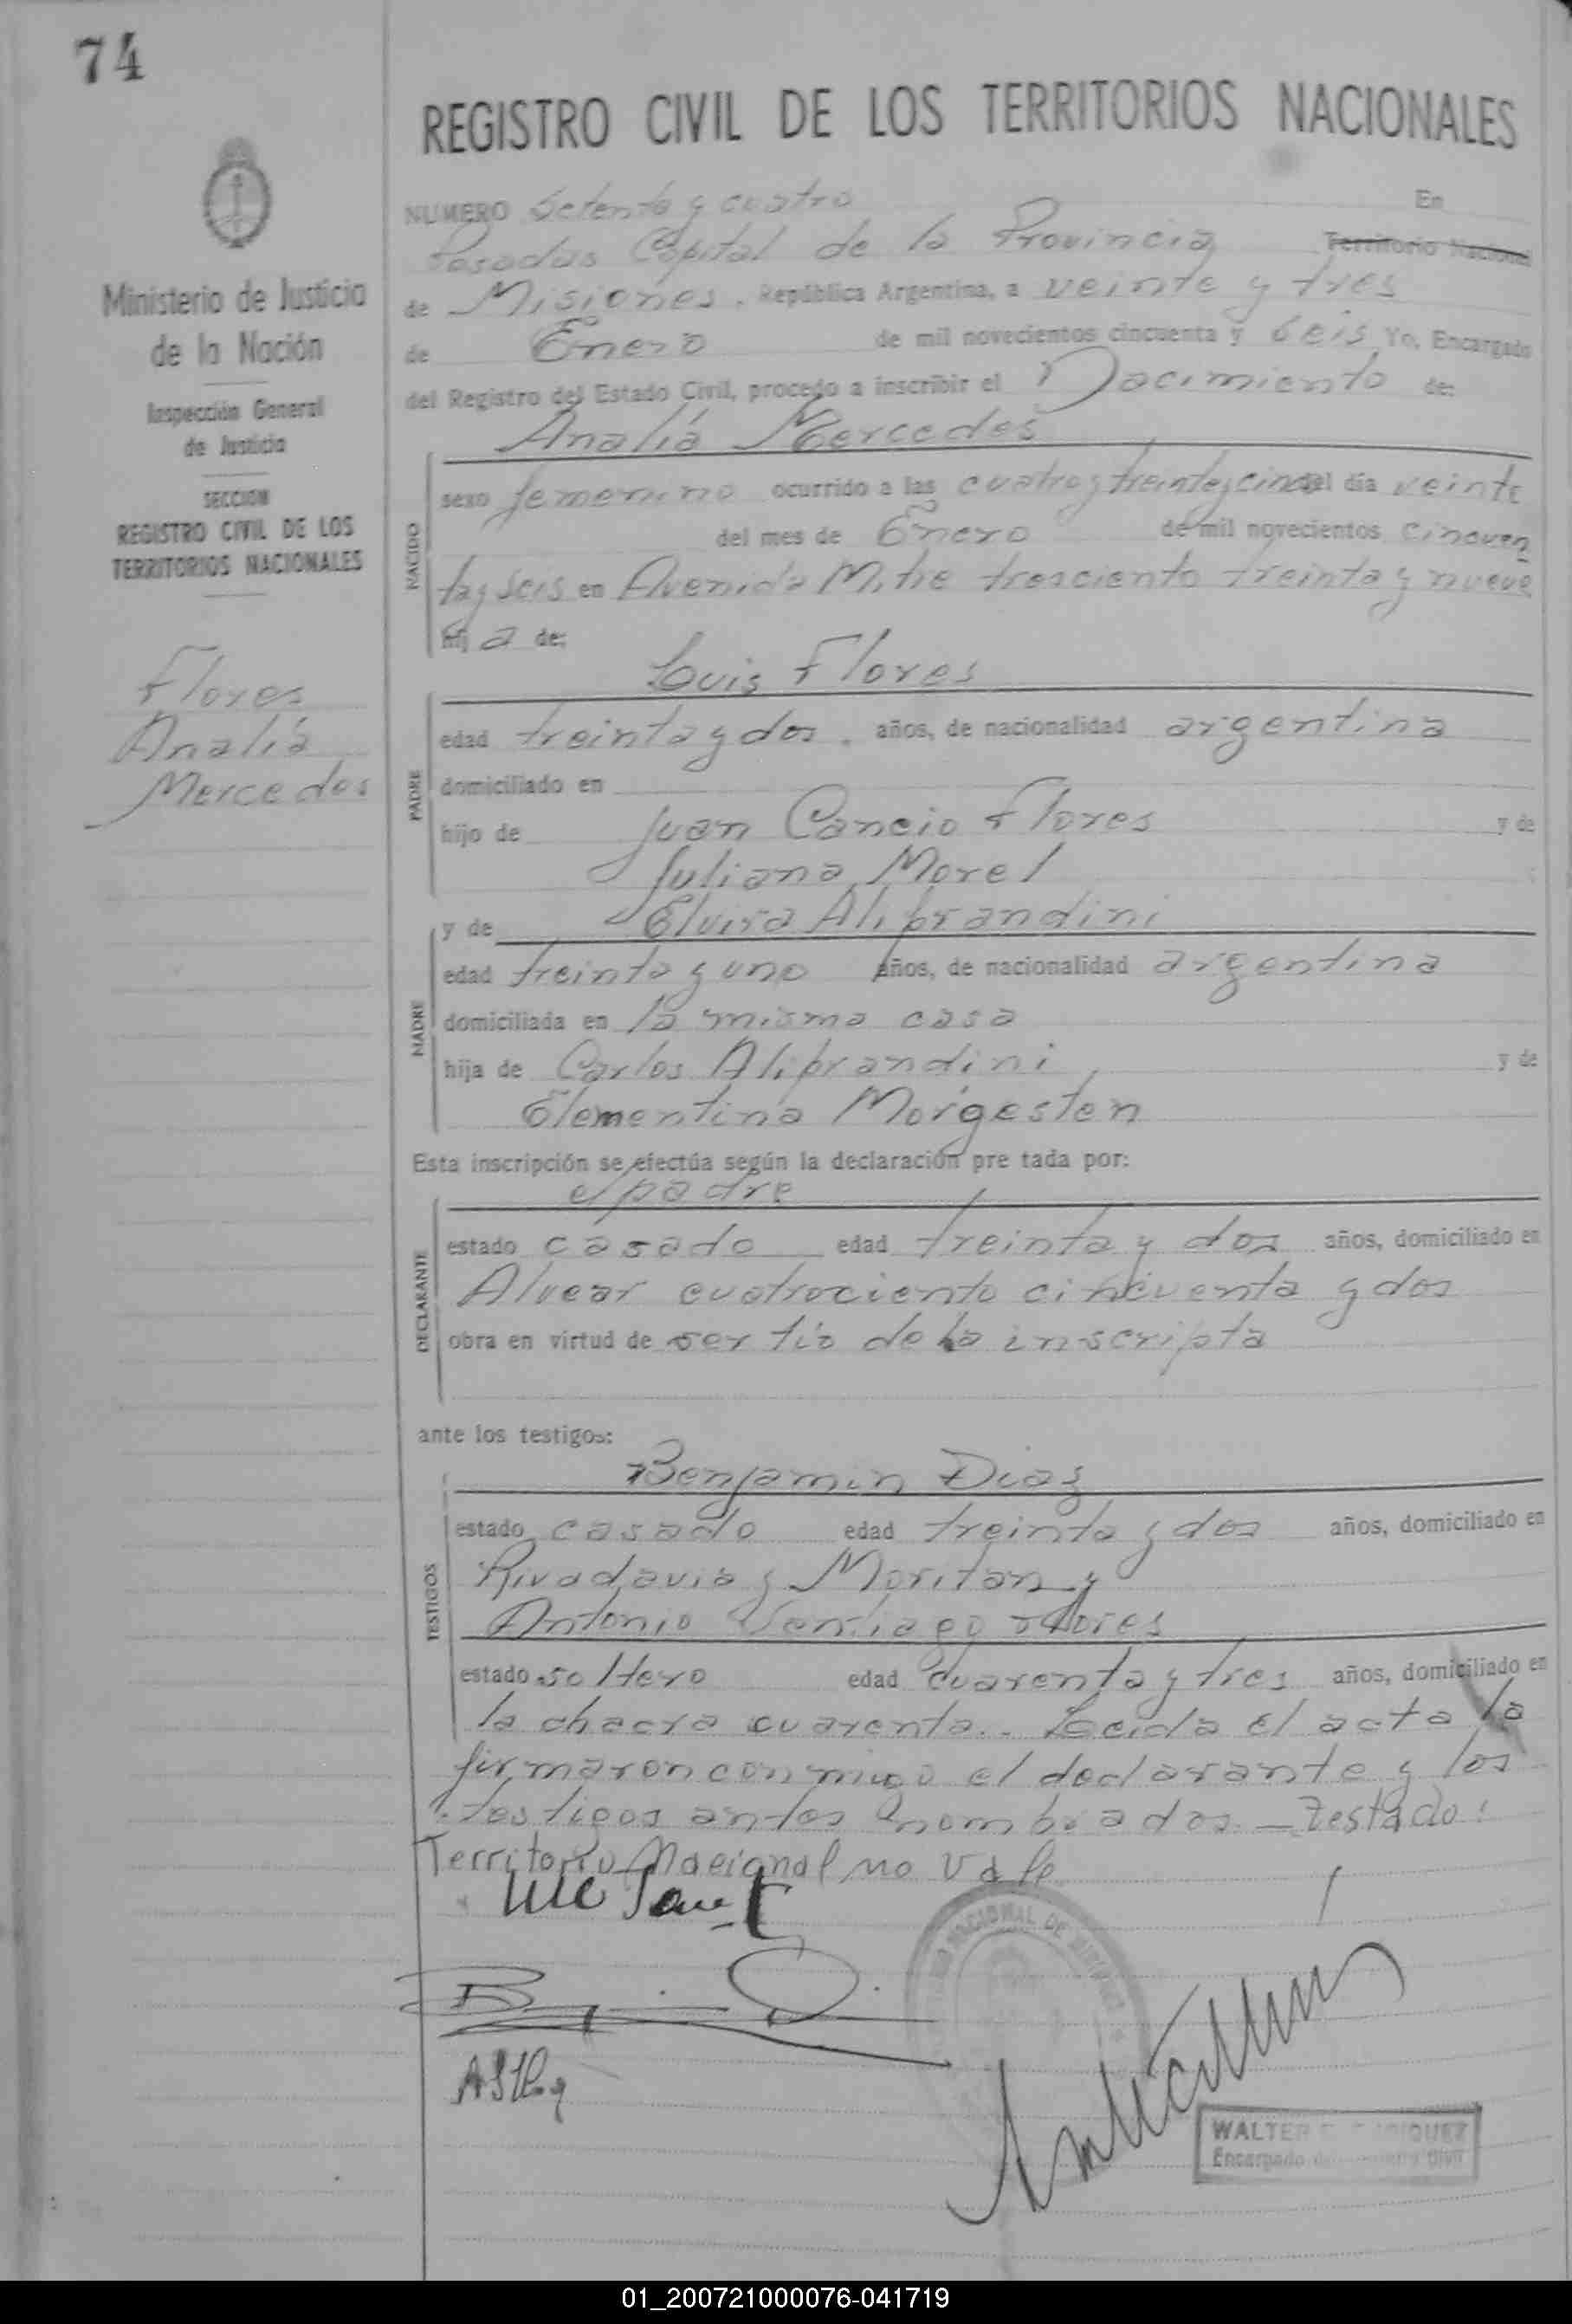 74
REGISTRO CIVIL DE LOS TERRITORIOS NACIONALES
Ministerio de Justicia
de la Nación
Inspección General
de Justicia
SECCION
REGISTRO CIVIL DE LOS
TERRITORIOS NACIONALES
Flores
Analía
Mercedes
NUMERO Setenta y cuatro En
Posadas Capital de la Provincia Territorio Nacional
de Misiones, República Argentina, a veinte y tres
de Enero de mil novecientos cincuenta y seis Yo, Encargado
del Registro del Estado Civil, procedo a inscribir el Nacimiento de:
Analía Mercedes
NACIDO
sexo femenino ocurrido a las cuatro y treinta y cinco del día veinte
del mes de Enero de mil novecientos cincuen
ta y seis en Avenida Mitre tresciento treinta y nueve
hij a de:
Luis Flores
PADRE
edad treinta y dos años, de nacionalidad argentina
domiciliado en
hijo de Juan Cancio Flores y de
Juliana Morel
y de Elvira Aliprandini
MADRE
edad treinta y uno años, de nacionalidad argentina
domiciliada en la misma casa
hija de Carlos Aliprandini y de
Clementina Morgesten
Esta inscripción se efectúa según la declaración pre tada por:
el padre
DECLARANTE
estado casado edad treinta y dos años, domiciliado en
Alvear cuatrociento cincuenta y dos
obra en virtud de ser tío de la inscripta
ante los testigos:
Benjamin Diaz
TESTIGOS
estado casado edad treinta y dos años, domiciliado en
Rivadavia y Moritan y
Antonio Santiago Flores
estado soltero edad cuarenta y tres años, domiciliado en
la chacra cuarenta.. Leida el acta la
firmaron conmigo el declarante y los
testigos antes nombrados.— Testado:
Territorio Nacional no vale
WALTER
Encargado
01_200721000076-041719